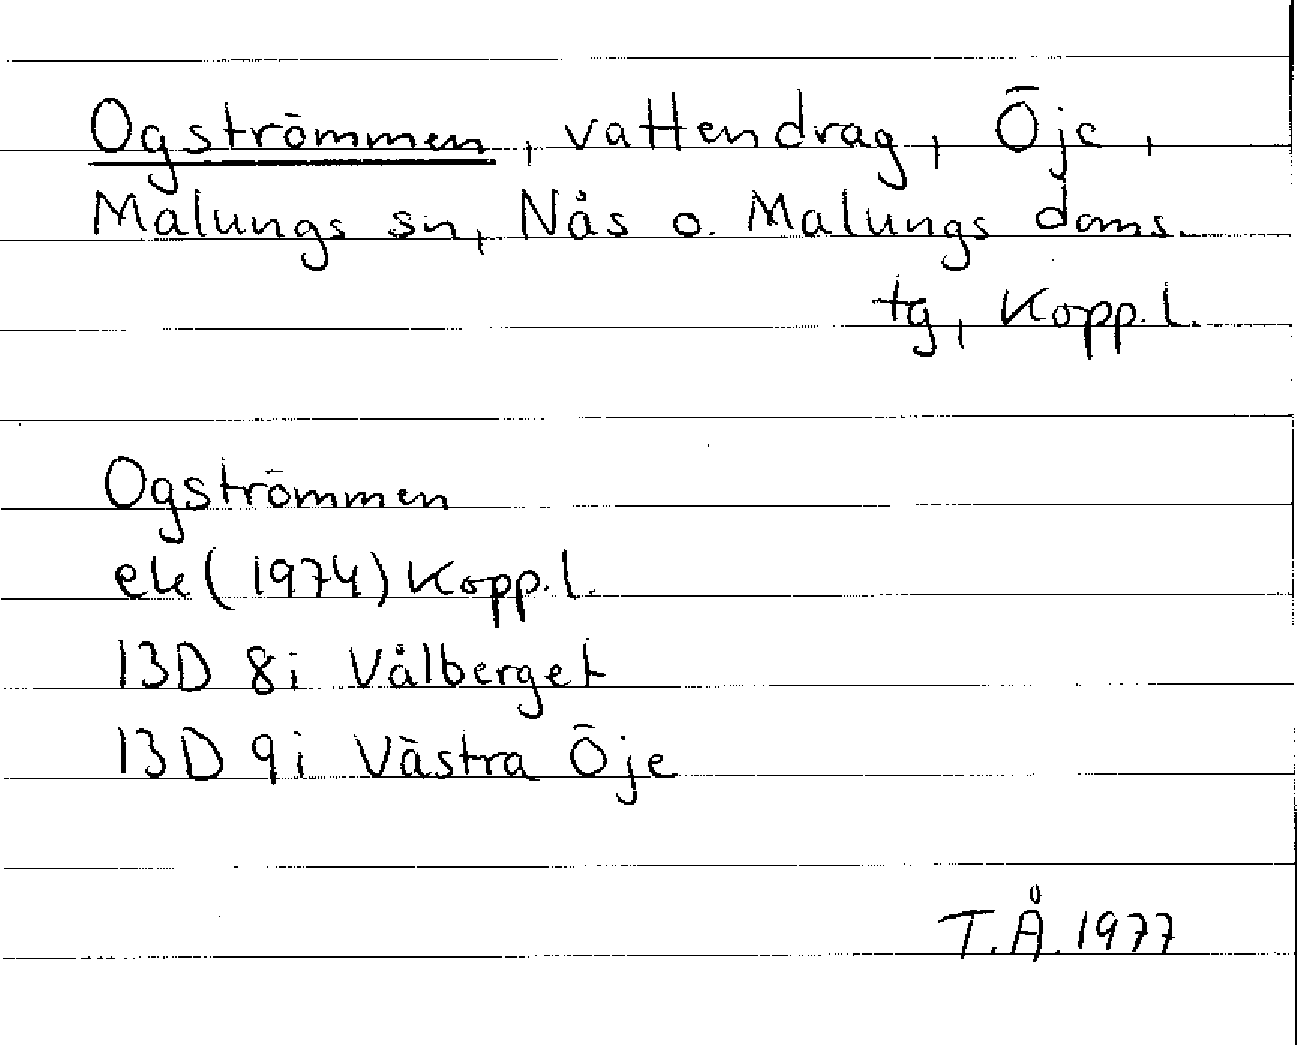 Ogströmmen, vattendrag, Öje,
Malungs sn, Nås o. Malungs doms.
tg, Kopp.l.
Ogströmmen
ek (1974) Kopp.l.
13D 8i Vålberget
13D 9i Västra Öje
T.Å. 1977